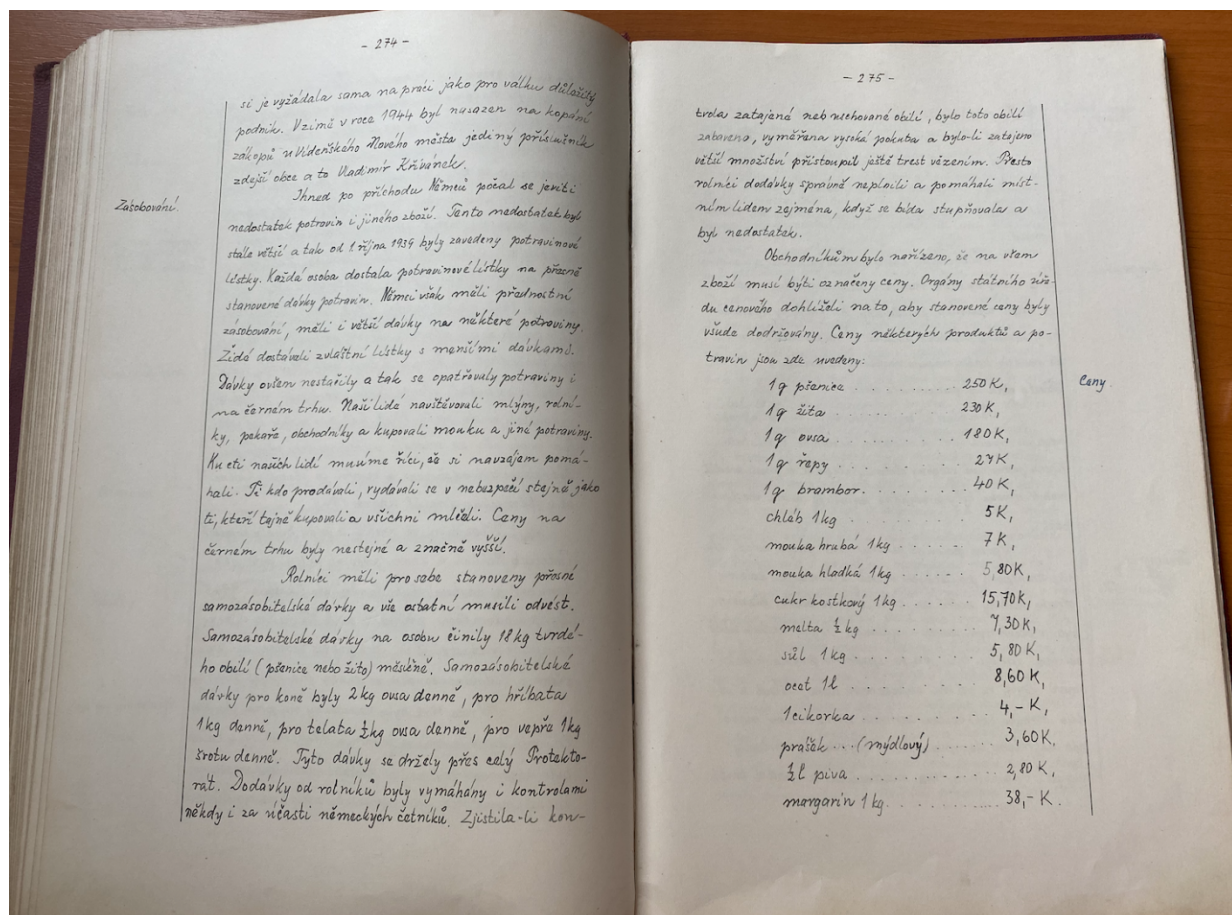 - 274 -
si je vyžádala sama na práci jako pro válku důležitý
podnik. V zimě v roce 1944 byl nasazen na kopání
zákopů u Vídeňského Nového města jediný příslušník
zdejší obce a to Vladimír Křivánek.
Zásobování.
Ihned po příchodu Němců počal se jeviti
nedostatek potravin i jiného zboží. Tento nedostatek byl
stále větší a tak od 1. října 1939 byly zavedeny potravinové
lístky. Každá osoba dostala potravinové lístky na přesně
stanovené dávky potravin. Němci však měli přednostní
zásobování, měli i větší dávky na některé potraviny.
Židé dostávali zvláštní lístky s menšími dávkami.
Dávky ovšem nestačily a tak se opatřovaly potraviny i
na černém trhu. Naši lidé navštěvovali mlýny, rolní-
ky, pekaře, obchodníky a kupovali mouku a jiné potraviny.
Ku cti našich lidí musíme říci, že si navzájem pomá-
hali. Ti kdo prodávali, vydávali se v nebezpečí stejně jako
ti, kteří tajně kupovali a všichni mlčeli. Ceny na
černém trhu byly nestejné a značně vyšší.
Rolníci měli pro sebe stanoveny přesné
samozásobitelské dávky a vše ostatní musili odvést.
Samozásobitelské dávky na osobu činily 18 kg tvrdé-
ho obilí (pšenice nebo žito) měsíčně. Samozásobitelské
dávky pro koně byly 2 kg ovsa denně, pro hříbata
1 kg denně, pro telata ½ kg ovsa denně, pro vepře 1 kg
šrotu denně. Tyto dávky se držely přes celý Protekto-
rát. Dodávky od rolníků byly vymáhány i kontrolami
někdy i za účasti německých četníků. Zjistila-li kon-
- 275 -
trola zatajené neb uschované obilí, bylo toto obilí
zabaveno, vyměřena vysoká pokuta a bylo-li zatajeno
větší množství přistoupil ještě trest vězením. Přesto
rolníci dodávky správně neplnili a pomáhali míst-
ním lidem zejména, když se bída stupňovala a
byl nedostatek.
Obchodníkům bylo nařízeno, že na všem
zboží musí býti označeny ceny. Orgány státního úřa-
du cenového dohlíželi na to, aby stanovené ceny byly
všude dodržovány. Ceny některých produktů a po-
travin jsou zde uvedeny:
1 q pšenice . . . . . . . . . . 250 K, Ceny.
1 q žita . . . . . . . . 230 K,
1 q ovsa . . . . . . . . . . 180 K,
1 q řepy . . . . . . . . . . 27 K,
1 q brambor. . . . . . . . . 40 K,
chléb 1 kg . . . . . . . . . 5 K,
mouka hrubá 1 kg . . . . . . 7 K,
mouka hladká 1 kg . . . . . . 5,80 K,
cukr kostkový 1 kg . . . . . . 15,70 K,
melta ½ kg . . . . . . . . . 7,30 K,
sůl 1 kg . . . . . . . . . . 5,80 K,
ocet 1 l . . . . . . . . . . 8,60 K,
1 cikorka . . . . . . . . . . 4,- K,
prášek ... (mýdlový) . . . . . . 3,60 K,
½ l piva . . . . . . . . . . . 2,80 K,
margarin 1 kg. . . . . . . . . . 38,- K.